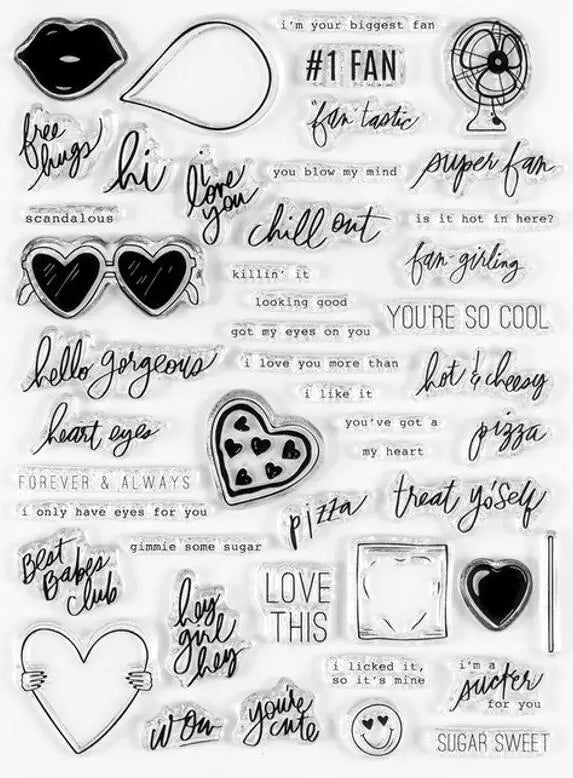 i'm your biggest fan
#1 FAN
"fan"tastic
free
hugs
hi
i
love
you
you blow my mind
super fan
scandalous
chill out
is it hot in here?
fan-girling
killin' it
looking good
YOU'RE SO COOL
got my eyes on you
hello gorgeous
i love you more than
hot & cheesy
i like it
heart eyes
you've got a
my heart
pizza
FOREVER & ALWAYS
i only have eyes for you
pizza
treat yo'self
Best
Babes
Club
gimmie some sugar
hey
girl
hey
LOVE
THIS
i licked it,
so it's mine
i'm a
sucker
for you
wow
you're
cute
SUGAR SWEET